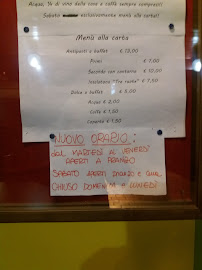 Acqua, ¼ di vino della casa e caffè sempre compresi!
Sabato esclusivamente menù alla carta!
Menù alla carta
Antipasti a buffet € 12,00
Primi € 7,00
Secondo con contorno € 10,00
Insalatona "Tre ruote" € 7,50
Dolce a buffet € 3,00
Acqua € 2,00
Caffè € 1,50
Coperto € 1,50
NUOVO ORARIO:
DAL MARTEDÌ AL VENERDÌ
APERTI A PRANZO
SABATO APERTI PRANZO E
CHIUSO DOMENICA E LUNEDÌ